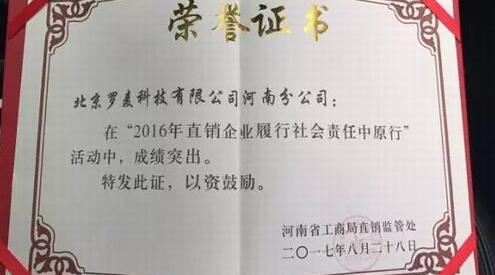 荣誉证书
北京罗麦科技有限公司河南分公司：
在“2016年直销企业履行社会责任中原行”
活动中，成绩突出。
特发此证，以资鼓励。
河南省工商局直销监管处
二〇一七年八月二十八日